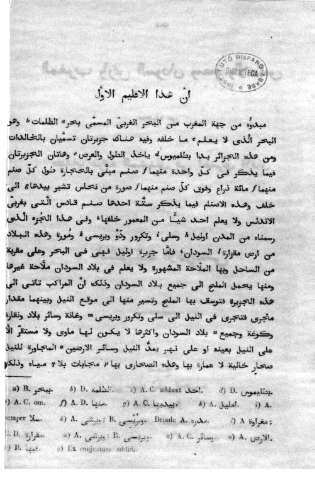 انّ هذا الاقليم الاوّل
مبدؤه من جهة المغرب من البحر الغربىّ المسمّى ببحر الظلمات وهو
البحر الّذى لا يعلم ما خلفه وفيه هناك جزيرتان تسمّيان بالخالدات
ومن هذه الجزائر بدأ بطلميوس ياخذ الطول والعرض وهاتان الجزيرتان
فيما يذكر فى كلّ واحدة منهما صنم مبنىّ بالحجارة طول كلّ صنم
منهما مائة ذراع وفوق كلّ صنم منهما صورة من نحاس تشير بيدها الى
خلف وهذه الاصنام فيما يذكر ستّة احدها صنم قادس الّتى بغربى
الاندلس ولا يعلم احد شيئًا من المعمور خلفها وفى هذا الجزء الّذى
رسمناه من المدن اوليل وسلى وتكرور ودوّ وبريسى ومورة وهذه البلاد
من ارض مقزارة السودان فامّا جزيرة اوليل فهى فى البحر وعلى مقربة
من الساحل وبها الملّاحة المشهورة ولا يعلم فى بلاد السودان ملّاحة غيرها
ومنها يحمل الملح الى جميع بلاد السودان وذلك انّ المراكب تاتى الى
هذه الجزيرة فتوسق بها الملح وتسير منها الى موقع النيل وبينهما مقدار
مجرى فتجرى فى النيل الى سلى وتكرور وبريسى وغانة وسائر بلاد ونقارة
وكوغة وجميع بلاد السودان واكثرها لا يكون لها ماوى ولا مستقرّ الّا
على النيل بعينه او على نهر يمدّ النيل وسائر الارضين المجاورة للنيل
صحار خالية لا عمارة بها وهذه الصحارى بها مجابات بلا مياه وذلك